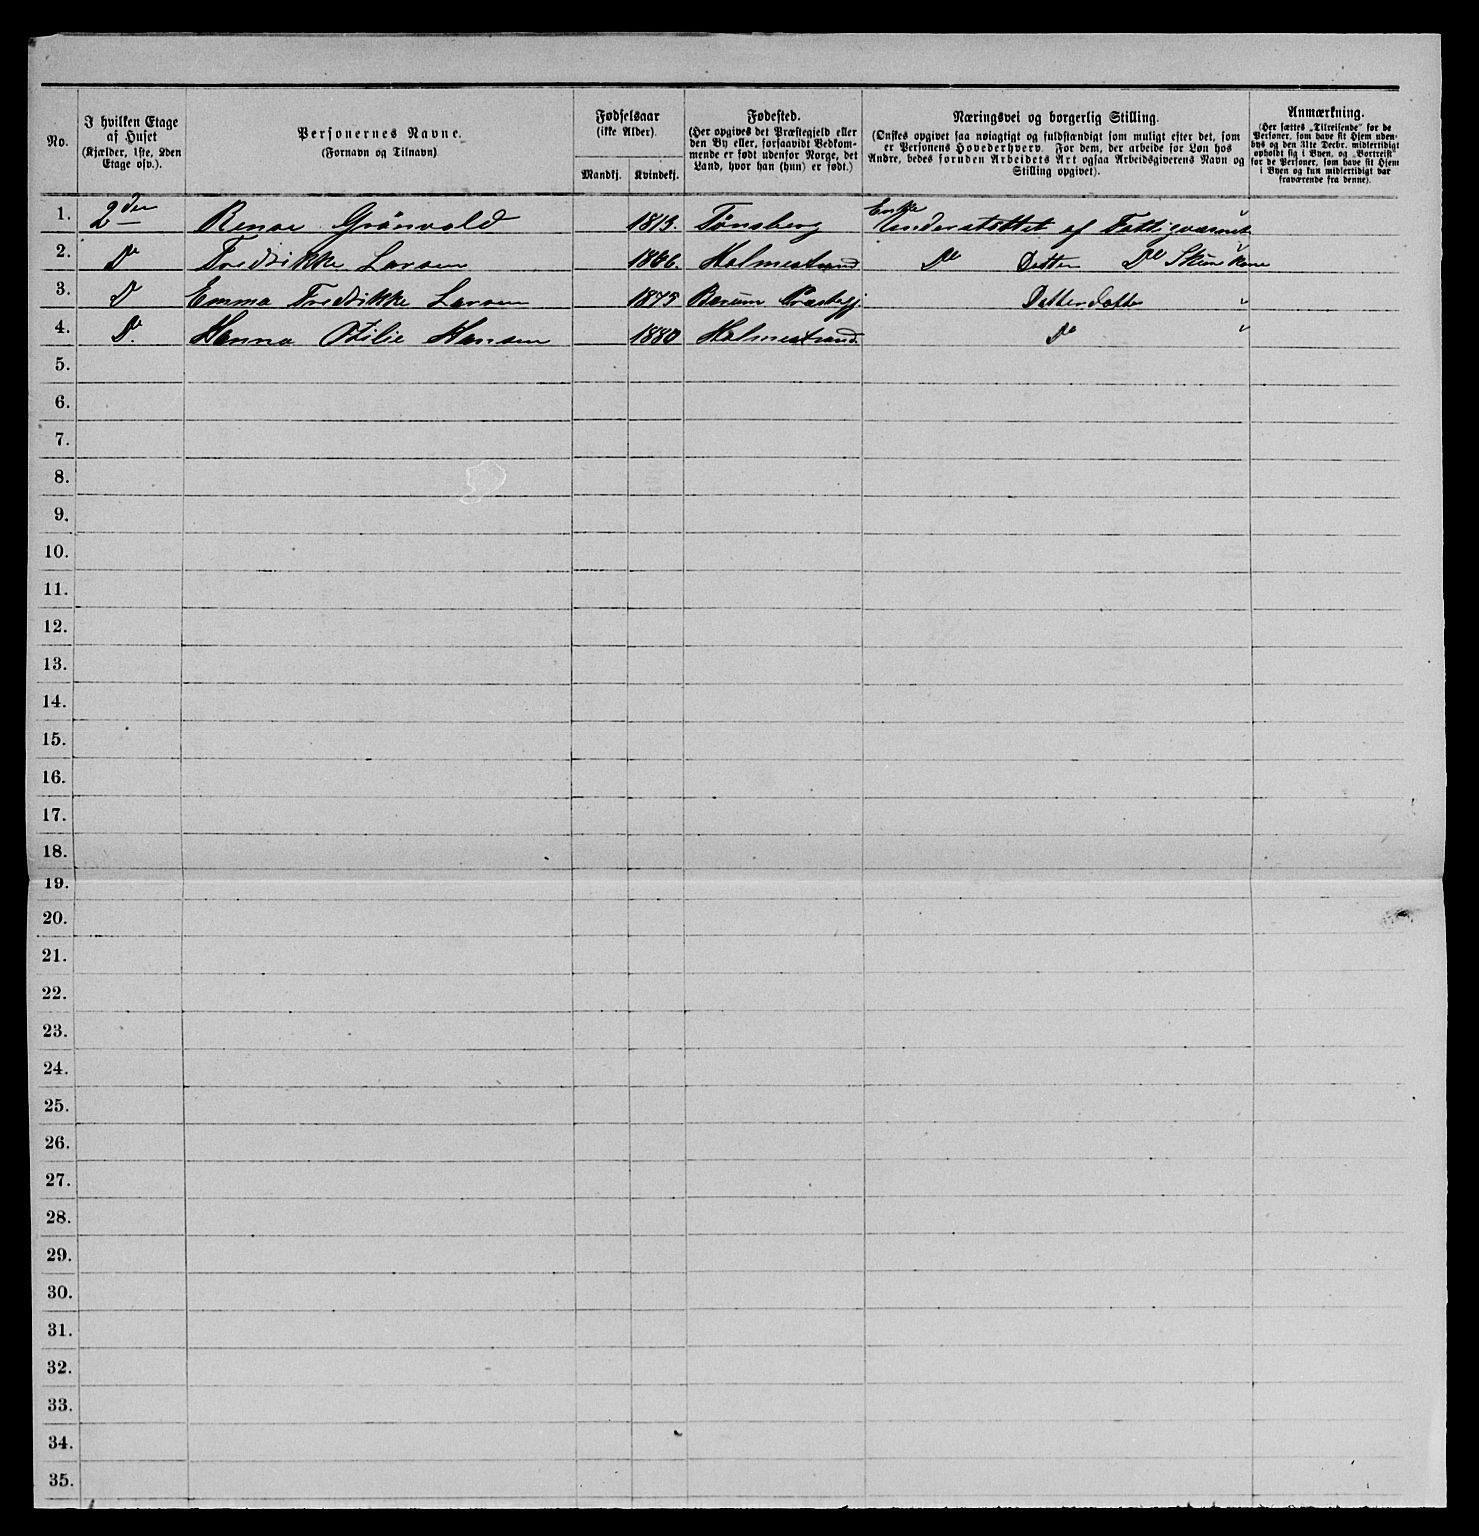 No.
I hvilken Etage af Huset (Kjælder, 1ste, 2den Etage osv.).
Personernes Navne. (Fornavn og Tilnavn)
Fødselsaar (ikke Alder).
Mandkj. Kvindekj.
Fødested. (Her opgives det Præstegjeld eller den By eller, forsaavidt Vedkommende er født udenfor Norge, det Land, hvor han (hun) er født.)
Næringsvei og borgerlig Stilling. (Ønskes opgivet saa nøiagtigt og fuldstændigt som muligt efter det, som er Personens Hovederhverv. For dem, der arbeide for Løn hos Andre, bedes foruden Arbeidets Art ogsaa Arbeidsgiverens Navn og Stilling opgivet).
Anmærkning. (Her sættes „Tilreisende" for de Personer, som have sit Hjem udenbys og den 31te Decbr. midlertidigt opholdt sig i Byen, og „Bortreist" for de Personer, som have sit Hjem i Byen og kun midlertidigt var fraværende fra denne).
1. 2den Renae Grönvold 1813. Tönsberg Enke Understöttet af Fattigvæsnet "
2. Do Fredrikke Larsen 1866. Holmestrand Do Datter Do Skurekone "
3. D Emma Fredrikke Larsen 1875 Bærum Præstegj. Datterdatter "
4. Do. Hanna Otilie Hansen 1880 Holmestrand. Do "
5.
6.
7.
8.
9.
10.
11.
12.
13.
14.
15.
16.
17.
18.
19.
20.
21.
22.
23.
24.
25.
26.
27.
28.
29.
30.
31.
32.
33.
34.
35.